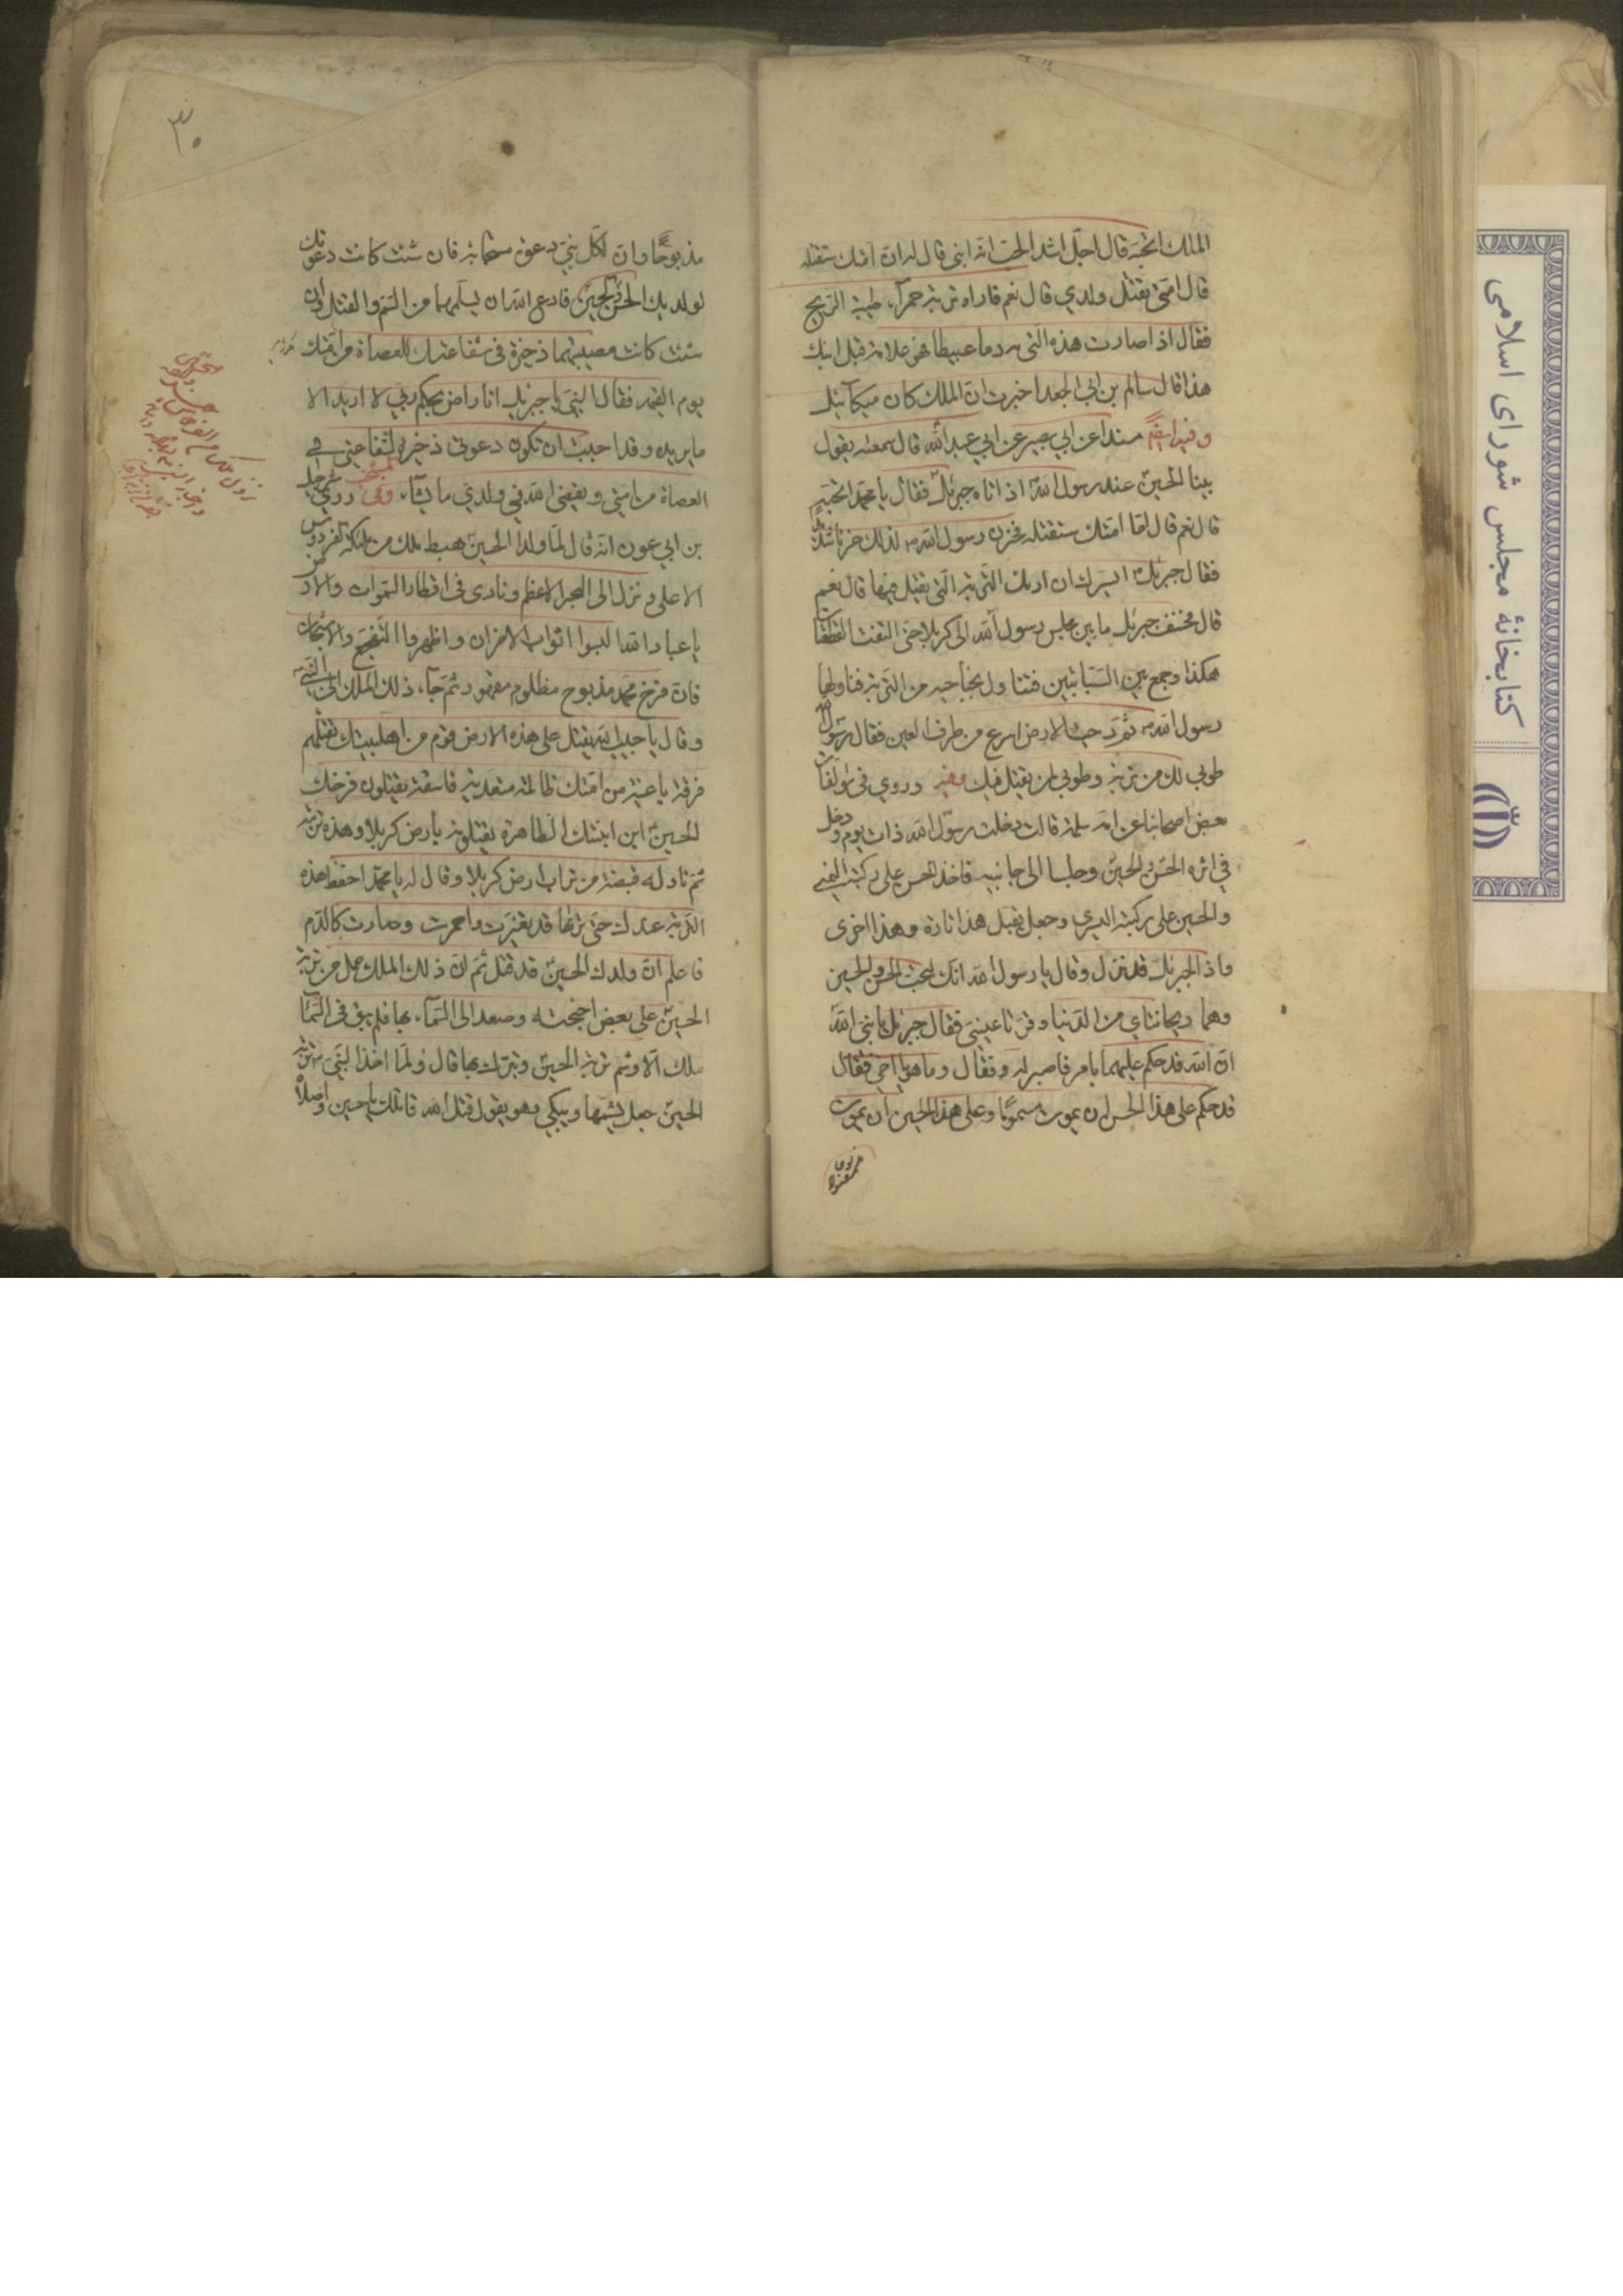 الملك اتحبه قال اجل اشد الحب انه ابنى قال له ان امتك ستقتله
قال امتى تقتل ولدي قال نعم فاراه تربة حمرآء طيبة الريح
فقال اذا صارت هذه التربه دما عبيطا فهو علامة قتل ابنك
هذا قال سالم بن ابي الجعد اخبرت ان الملك كان ميكآئيل
وفيه ايضًا مسندا عن ابي بصير عن ابي عبد الله قال سمعته يقول
بينا الحسين عند رسول الله اذ اتاه جبرئيل فقال يا محمد اتحبه
قال نعم قال اما امتك ستقتله فحزن رسول الله لذلك حزنا شديدا
فقال جبرئيل ايسرك ان اريك التربة التي يقتل فيها قال نعم
قال فخسف جبرئيل ما بين مجلس رسول الله الى كربلا حتى التفت القطعتان
هكذا وجمع بين السبابتين فتناول بجناحيه من التربة فناولها
رسول الله ثم رد حيث الارض اسرع من طرف العين فقال رسول الله
طوبى لك من تربة وطوبى لمن يقتل فيك وفيه وروي في مؤلفات
بعض اصحابنا عن ام سلمة قالت دخلت رسول الله ذات يوم ودخل
في اثره الحسن والحسين وجلسا الى جانبيه فاخذ الحسن على ركبته اليمنى
والحسين على ركبته اليسرى وجعل يقبل هذا تارة وهذا اخرى
واذا بجبرئيل قد نزل وقال يا رسول الله انك لتحب الحسن والحسين
وهما ريحانتاي من الدنيا وقرتا عينى فقال جبرئيل يا نبى الله
ان الله قد حكم عليهما بامر فاصبر له فقال وما هو يا اخي فقال
قد حكم على هذا الحسن ان يموت مسمومًا وعلى هذا الحسين ان يموت
مذبوحًا وان لكل نبي دعوة مستجابة فان شئت كانت دعوتك
لولديك الحسن والحسين فادع الله ان يسلمهما من السم والقتل وان
شئت كانت مصيبتهما ذخيرة فى شفاعتك للعصاة من امتك
يوم القيمة فقال النبي يا جبرئيل انا راض بحكم ربي لا اريد الا
ما يريده وقد احببت ان تكون دعوتى ذخيرة لشفاعتى في
العصاة من امتى ويقضى الله في ولدي ما يشآء وفى روى شرحبيل
بن ابي عون انه قال لما ولد الحسين هبط ملك من ملئكة الفردوس
الاعلى ونزل الى البحر الاعظم ونادى فى اقطار السموات والارض
يا عباد الله البسوا اثواب الاحزان واظهروا التفجع والاشجان
فان فرخ محمد مذبوح مظلوم مقهور ثم جآء ذلك الملك الى النبي
وقال يا حبيب الله يقتل على هذه الارض قوم من اهلبيتك تقتلهم
فرقة باغية من امتك ظالمة متعدية فاسقة يقتلون فرخك
الحسين ابن ابنتك الطاهرة يقتلونه بارض كربلا وهذه تربته
ثم ناوله قبضة من تراب ارض كربلا وقال له يا محمد احفظ هذه
التربة عندك حتى تراها قد تغيرت واحمرت وصارت كالدم
فاعلم ان ولدك الحسين قد قتل ثم ان ذلك الملك حمل من تربة
الحسين على بعض اجنحته وصعد الى السمآء بها فلم يبق فى السمآء
ملك الا وشم تربة الحسين وتبرك بها قال ولما اخذ النبي تربة
الحسين جعل يشمها ويبكي وهو يقول قتل الله قاتلك يا حسين واصلاه
٣٠
كتابخانهٔ مجلس شورای اسلامی